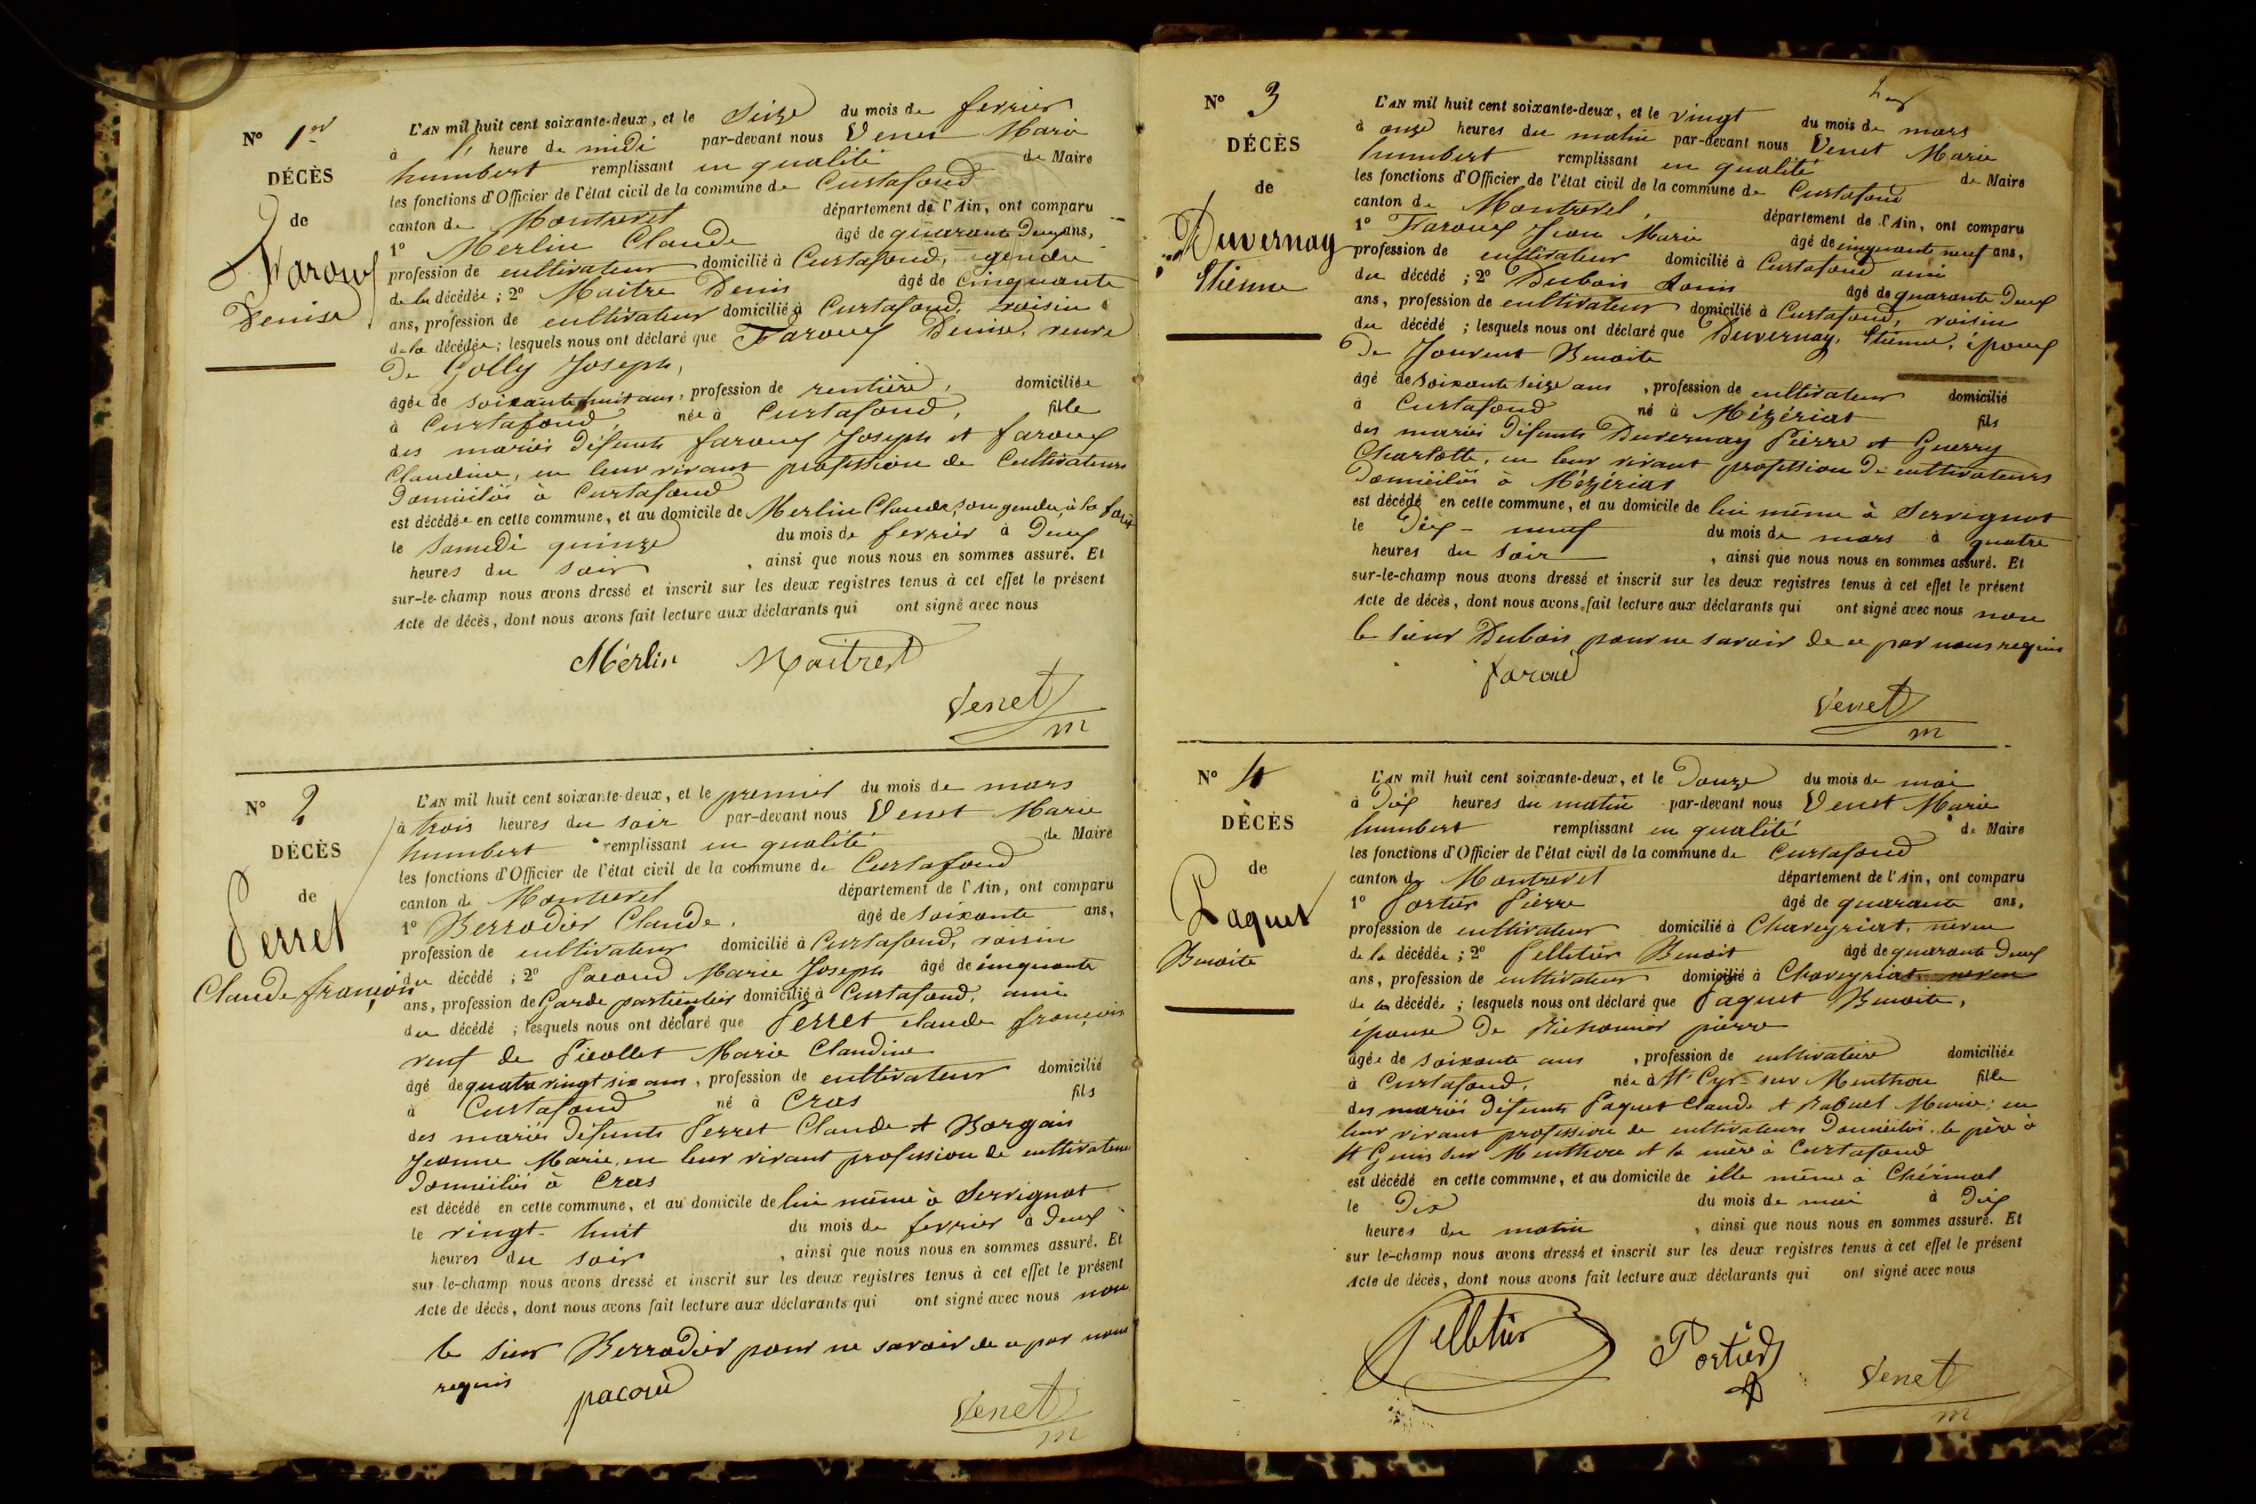 N° 1er
DÉCÈS
de
Farouf
Denise
L'AN mil huit cent soixante-deux, et le Seize du mois de fevrier
à l' heure de midi par-devant nous Venet Marie
humbert remplissant en qualité de Maire
les fonctions d'Officier de l'état civil de la commune de Curtafond
canton de Montrevel département de l'Ain, ont comparu
1° Merlin Claude âgé de quarante Deux ans,
profession de cultivateur domicilié à Curtafond, gendre
de la décédée ; 2° Maitre Denis âgé de Cinquante
ans, profession de cultivateur domicilié à Curtafond, voisin
de la décédée ; lesquels nous ont déclaré que Farouf Denise, veuve
De Golly Joseph,
âgée de soixante huit ans, profession de rentière, domiciliée
à Curtafond, née à Curtafond, fille
des mariés Défunts farouf Joseph et farouf
Claudine, en leur vivant profession de Cultivateurs
Domiciliés à Curtafond
est décédée en cette commune, et au domicile de Merlin Claude, son gendre, à la
le Samedi quinze du mois de fevrier à Deux
heures du soir, ainsi que nous nous en sommes assuré. Et
sur-le-champ nous avons dressé et inscrit sur les deux registres tenus à cet effet le présent
Acte de décès, dont nous avons fait lecture aux déclarants qui ont signé avec nous
Mérlin Maitre D
Venet
m
N° 2
DÉCÈS
de
Perret
Claude françois
L'AN mil huit cent soixante-deux, et le premier du mois de mars
à trois heures du soir par-devant nous Venet Marie
humbert remplissant en qualité de Maire
les fonctions d'Officier de l'état civil de la commune de Curtafond
canton de Montrevel département de l'Ain, ont comparu
1° Berrodier Claude, âgé de soixante ans,
profession de cultivateur domicilié à Curtafond, voisin
du décédé ; 2° Pacoud Marie Joseph âgé de cinquante
ans, profession de Garde particulier domicilié à Curtafond, ami
du décédé ; lesquels nous ont déclaré que Perret claude françois
veuf de Picollet Marie Claudine
âgé de quatre vingt six ans, profession de cultivateur domicilié
à Curtafond né à Cras fils
des mariés Défunts Perret Claude et Borgais
Jeanne Marie, en leur vivant profession de cultivateurs
Domiciliés à Cras
est décédé en cette commune, et au domicile de lui même à Servignat
le vingt-huit du mois de fevrier à Deux
heures du soir, ainsi que nous nous en sommes assuré. Et
sur-le-champ nous avons dressé et inscrit sur les deux registres tenus à cet effet le présent
Acte de décès, dont nous avons fait lecture aux déclarants qui ont signé avec nous non
le sieur Berrodier pour ne savoir de ce par nous
requis
pacoud
Venet
m
N° 3
DÉCÈS
de
Duvernay
Etienne
L'AN mil huit cent soixante-deux, et le vingt du mois de mars
à onze heures du matin par-devant nous Venet Marie
humbert remplissant en qualité de Maire
les fonctions d'Officier de l'état civil de la commune de Curtafond
canton de Montrevel, département de l'Ain, ont comparu
1° Farouf Jean Marie âgé de cinquante neuf ans,
profession de cultivateur domicilié à Curtafond ami
du décédé ; 2° Dubois Louis âgé de quarante Deux
ans, profession de cultivateur domicilié à Curtafond, voisin
du décédé ; lesquels nous ont déclaré que Duvernay, Etienne, époux
De Jouvent Benoite
âgé de soixante seize ans, profession de cultivateur domicilié
à Curtafond né à Mézériat fils
des mariés Défunts Duvernay Pierre et Guerry
Charlotte, en leur vivant profession De cultivateurs
Domiciliés à Mézériat
est décédé en cette commune, et au domicile de lui même à Servignat
le Dix-neuf du mois de mars à quatre
heures du soir, ainsi que nous nous en sommes assuré. Et
sur-le-champ nous avons dressé et inscrit sur les deux registres tenus à cet effet le présent
Acte de décès, dont nous avons fait lecture aux déclarants qui ont signé avec nous non
le sieur Dubois pour ne savoir de ce par nous requis
faroud
Venet
m
N° 4
DÉCÈS
de
Paquet
Benoite
L'AN mil huit cent soixante-deux, et le Douze du mois de mai
à Dix heures du matin par-devant nous Venet Marie
humbert remplissant en qualité de Maire
les fonctions d'Officier de l'état civil de la commune de Curtafond
canton de Montrevel département de l'Ain, ont comparu
1° Portier Pierre âgé de quarante ans,
profession de cultivateur domicilié à Chaveyriat, neveu
de la décédée ; 2° Pelletier Benoit âgé de quarante Deux
ans, profession de cultivateur domicilié à Chaveyriat, neveu
de la décédée ; lesquels nous ont déclaré que Paquet Benoite,
épouse De Richonnier pierre
âgée de soixante ans, profession de cultivatrice domiciliée
à Curtafond, née à St Cyr-sur Menthon fille
des mariés Défunts Paquet Claude et Rabuel Marie; en
leur vivant profession de cultivateurs Domiciliés, le père à
St Genis sur Menthon et la mère à Curtafond
est décédé en cette commune, et au domicile de elle même à Chérinal
le Dix du mois de mai à Dix
heures du matin, ainsi que nous nous en sommes assuré. Et
sur-le-champ nous avons dressé et inscrit sur les deux registres tenus à cet effet le présent
Acte de décès, dont nous avons fait lecture aux déclarants qui ont signé avec nous
Pelletier Portier
Venet
m